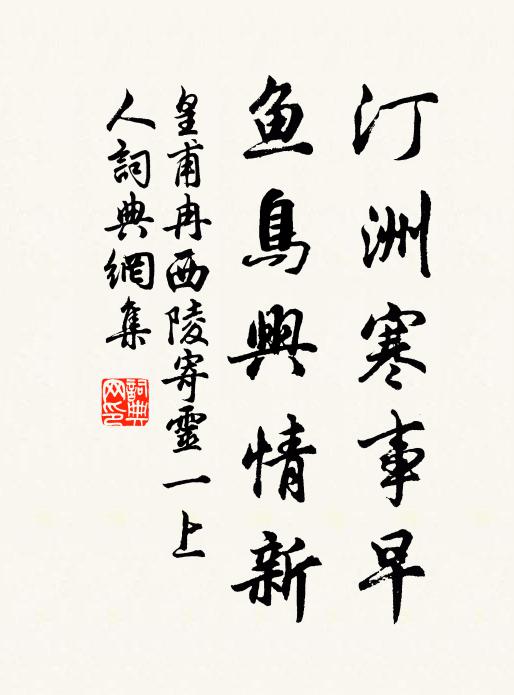 汀洲寒事早
鱼鳥興情新
皇甫冉西陵寄靈一上
人詞典網集
詞典
网印